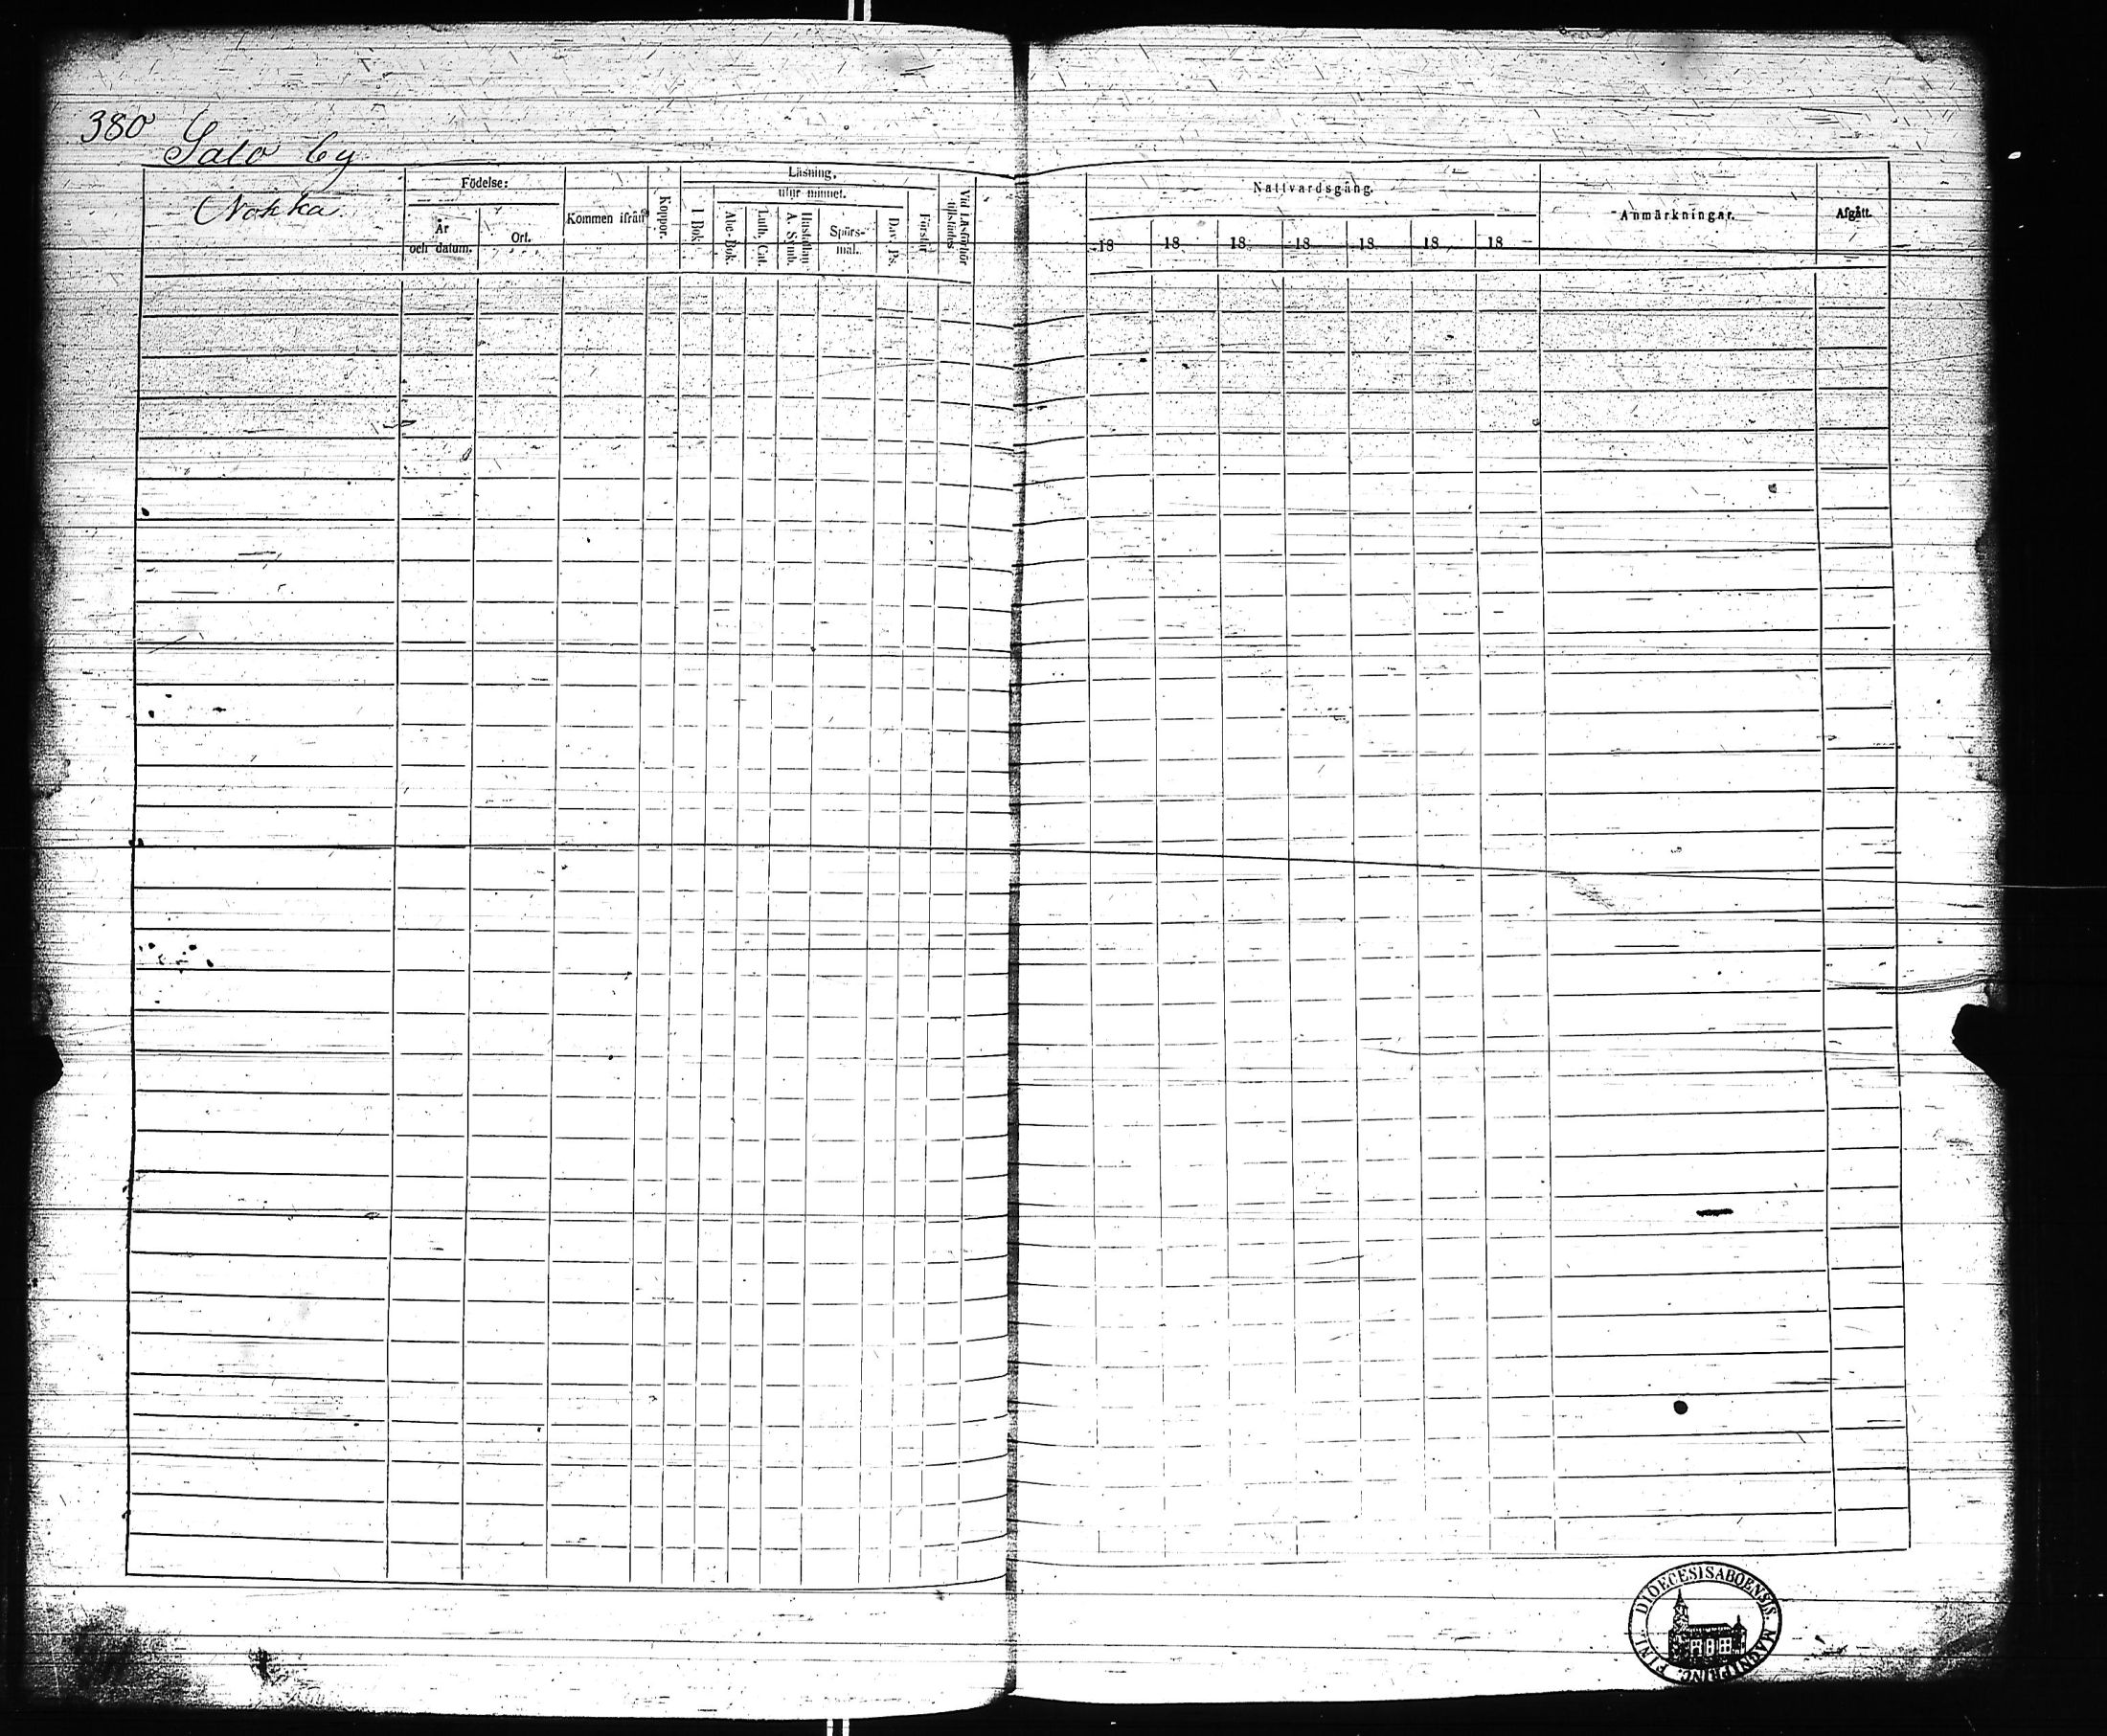 380
Salo by
Nokka
Födelse:
År
och datum.
Ort.
Kommen ifrån
Koppor.
Läsning,
I Bok.
utur minnet.
Abc-Bok.
Luth. Cat.
Hustaflan
A. Symb.
Spörs-
mål.
Dav. Ps.
Förstår.
Vid Läsförhör
tillstädes.
Nattvardsgång.
18 18 18 18 18 18 18
Anmärkningar.
Afgått.
DIOECESIS ABOENSIS. MAGNI PRINC. FINL.